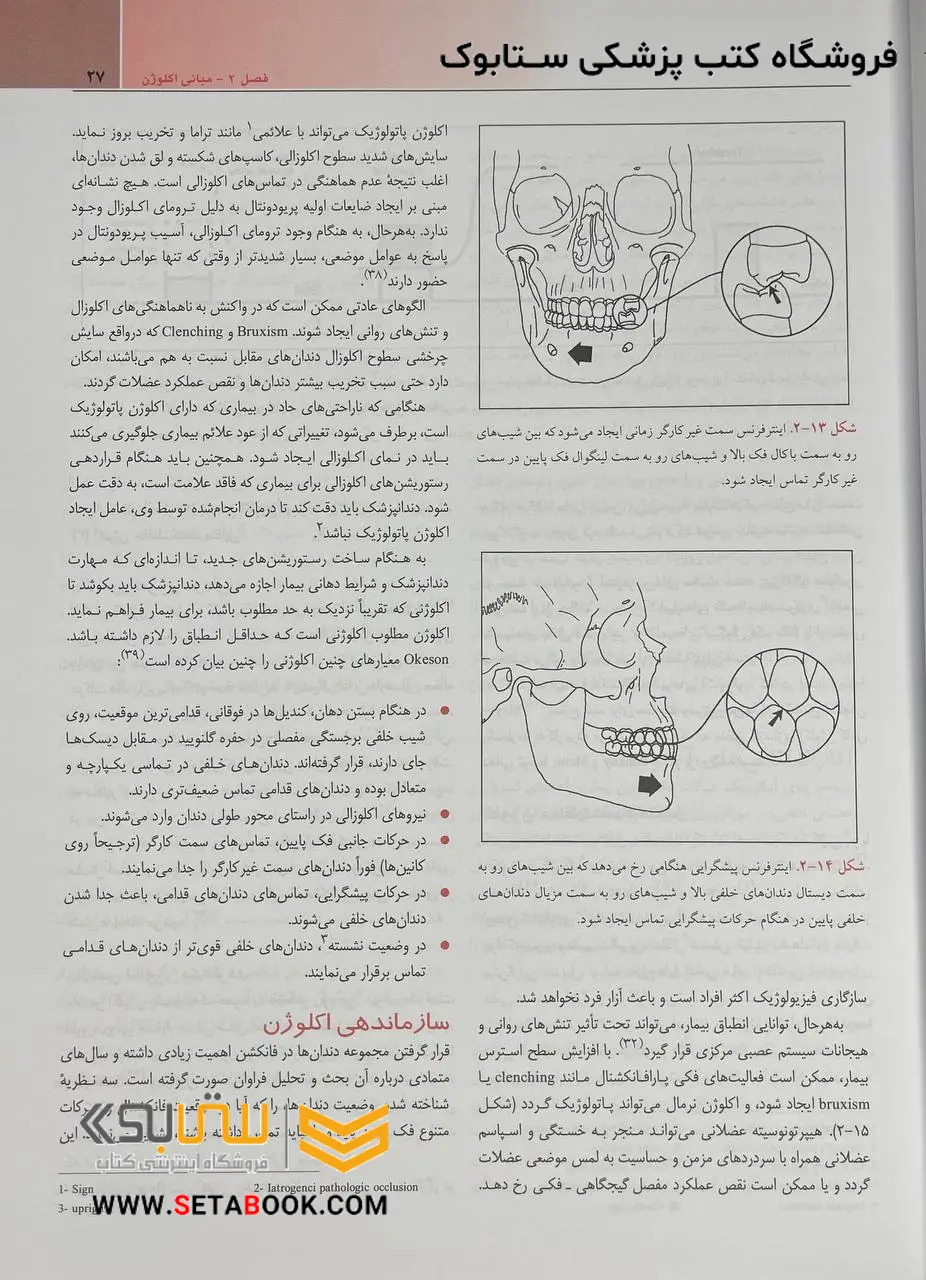 فروشگاه کتب پزشکی ستابوک
فصل ۲ - مبانی اکلوژن
۲۷
شکل ۱۳-۲. اینترفرنس سمت غیر کارگر زمانی ایجاد می‌شود که بین شیب‌های
رو به سمت باکال فک بالا و شیب‌های رو به سمت لینگوال فک پایین در سمت
غیر کارگر تماس ایجاد شود.
شکل ۱۴-۲. اینترفرنس پیشگرایی هنگامی رخ می‌دهد که بین شیب‌های رو به
سمت دیستال دندان‌های خلفی بالا و شیب‌های رو به سمت مزیال دندان‌های
خلفی پایین در هنگام حرکات پیشگرایی تماس ایجاد شود.
سازگاری فیزیولوژیک اکثر افراد است و باعث آزار فرد نخواهد شد.
به‌هرحال، توانایی انطباق بیمار، می‌تواند تحت تأثیر تنش‌های روانی و
هیجانات سیستم عصبی مرکزی قرار گیرد(۳۲). با افزایش سطح استرس
بیمار، ممکن است فعالیت‌های فکی پارافانکشنال مانند clenching یا
bruxism ایجاد شود، و اکلوژن نرمال می‌تواند پاتولوژیک گردد (شکل
۱۵-۲). هیپرتونوسیته عضلانی می‌تواند منجر به خستگی و اسپاسم
عضلانی همراه با سردردهای مزمن و حساسیت به لمس موضعی عضلات
گردد و یا ممکن است نقص عملکرد مفصل گیجگاهی ـ فکی رخ دهد.
اکلوژن پاتولوژیک می‌تواند با علائمی۱ مانند تراما و تخریب بروز نماید.
سایش‌های شدید سطوح اکلوزالی، کاسپ‌های شکسته و لق شدن دندان‌ها،
اغلب نتیجهٔ عدم هماهنگی در تماس‌های اکلوزالی است. هیچ نشانه‌ای
مبنی بر ایجاد ضایعات اولیه پریودونتال به دلیل ترومای اکلوزال وجود
ندارد. به‌هرحال، به هنگام وجود ترومای اکلوزالی، آسیب پریودونتال در
پاسخ به عوامل موضعی، بسیار شدیدتر از وقتی که تنها عوامل موضعی
حضور دارند(۳۸).
الگوهای عادتی ممکن است که در واکنش به ناهماهنگی‌های اکلوزال
و تنش‌های روانی ایجاد شوند. Bruxism و Clenching که درواقع سایش
چرخشی سطوح اکلوزال دندان‌های مقابل نسبت به هم می‌باشند، امکان
دارد حتی سبب تخریب بیشتر دندان‌ها و نقص عملکرد عضلات گردند.
هنگامی که ناراحتی‌های حاد در بیماری که دارای اکلوژن پاتولوژیک
است، برطرف می‌شود، تغییراتی که از عود علائم بیماری جلوگیری می‌کنند
باید در نمای اکلوزالی ایجاد شود. همچنین باید هنگام قراردهی
رستوریشن‌های اکلوزالی برای بیماری که فاقد علامت است، به دقت عمل
شود. دندانپزشک باید دقت کند تا درمان انجام‌شده توسط وی، عامل ایجاد
اکلوژن پاتولوژیک نباشد۲.
به هنگام ساخت رستوریشن‌های جدید، تا اندازه‌ای که مهارت
دندانپزشک و شرایط دهانی بیمار اجازه می‌دهد، دندانپزشک باید بکوشد تا
اکلوژنی که تقریباً نزدیک به حد مطلوب باشد، برای بیمار فراهم نماید.
اکلوژن مطلوب اکلوژنی است که حداقل انطباق را لازم داشته باشد.
Okeson معیارهای چنین اکلوژنی را چنین بیان کرده است(۳۹):
● در هنگام بستن دهان، کندیل‌ها در فوقانی، قدامی‌ترین موقعیت، روی
شیب خلفی برجستگی مفصلی در حفره گلنویید در مقابل دیسک‌ها
جای دارند، قرار گرفته‌اند. دندان‌های خلفی در تماسی یکپارچه و
متعادل بوده و دندان‌های قدامی تماس ضعیف‌تری دارند.
● نیروهای اکلوزالی در راستای محور طولی دندان وارد می‌شوند.
● در حرکات جانبی فک پایین، تماس‌های سمت کارگر (ترجیحاً روی
کانین‌ها) فوراً دندان‌های سمت غیرکارگر را جدا می‌نمایند.
● در حرکات پیشگرایی، تماس‌های دندان‌های قدامی، باعث جدا شدن
دندان‌های خلفی می‌شوند.
● در وضعیت نشسته۳، دندان‌های خلفی قوی‌تر از دندان‌های قدامی
تماس برقرار می‌نمایند.
سازماندهی اکلوژن
قرار گرفتن مجموعه دندان‌ها در فانکشن اهمیت زیادی داشته و سال‌های
متمادی درباره آن بحث و تحلیل فراوان صورت گرفته است. سه نظریهٔ
شناخته شده وضعیت دندان‌ها را که آیا در موقعیت فانکشنال و حرکات
متنوع فک باید تماس داشته باشند این
1- Sign
2- Iatrogenci pathologic occlusion
3- upright
ستابوک
فروشگاه اینترنتی کتاب
WWW.SETABOOK.COM